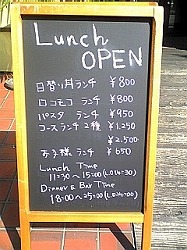 Lunch
OPEN
日替り丼ランチ ¥800
ロコモコ ランチ ¥800
パスタ ランチ ¥950
コースランチ2種 ¥1,250
¥2,500
お子様ランチ ¥650
Lunch Time
11:30~15:00(L.O14:30)
Dinner & Bar Time
18:00~25:00(L.O24:00)